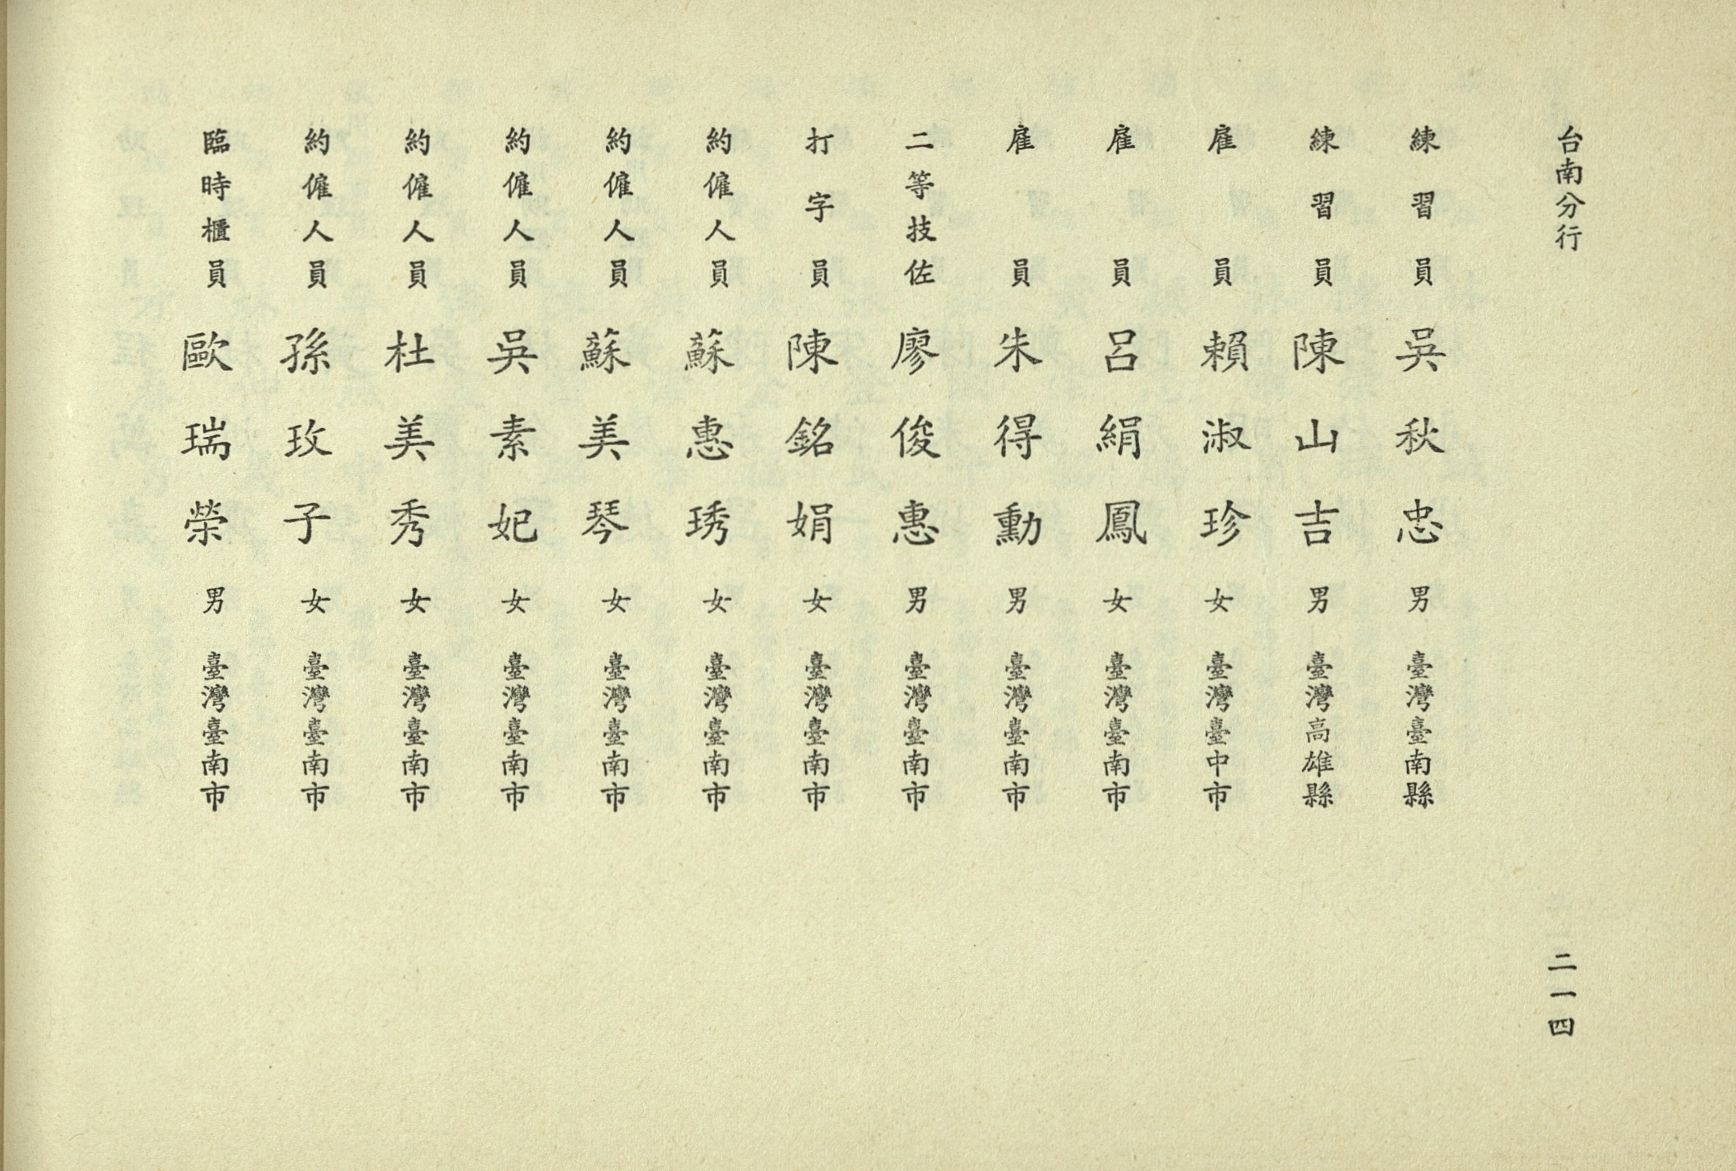 台南分行
二一四
練習員 吳秋忠 男 臺灣臺南縣
練習員 陳山吉 男 臺灣高雄縣
雇員 賴淑珍 女 臺灣臺中市
雇員 呂絹鳳 女 臺灣臺南市
雇員 朱得勳 男 臺灣臺南市
二等技佐 廖俊惠 男 臺灣臺南市
打字員 陳銘娟 女 臺灣臺南市
約僱人員 蘇惠琇 女 臺灣臺南市
約僱人員 蘇美琴 女 臺灣臺南市
約僱人員 吳素妃 女 臺灣臺南市
約僱人員 杜美秀 女 臺灣臺南市
約僱人員 孫玫子 女 臺灣臺南市
臨時櫃員 歐瑞榮 男 臺灣臺南市